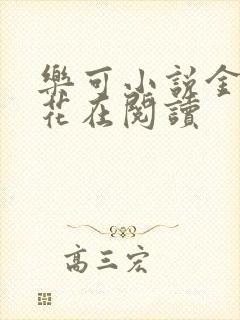 樂可小說金
花在閱讀
高三宏